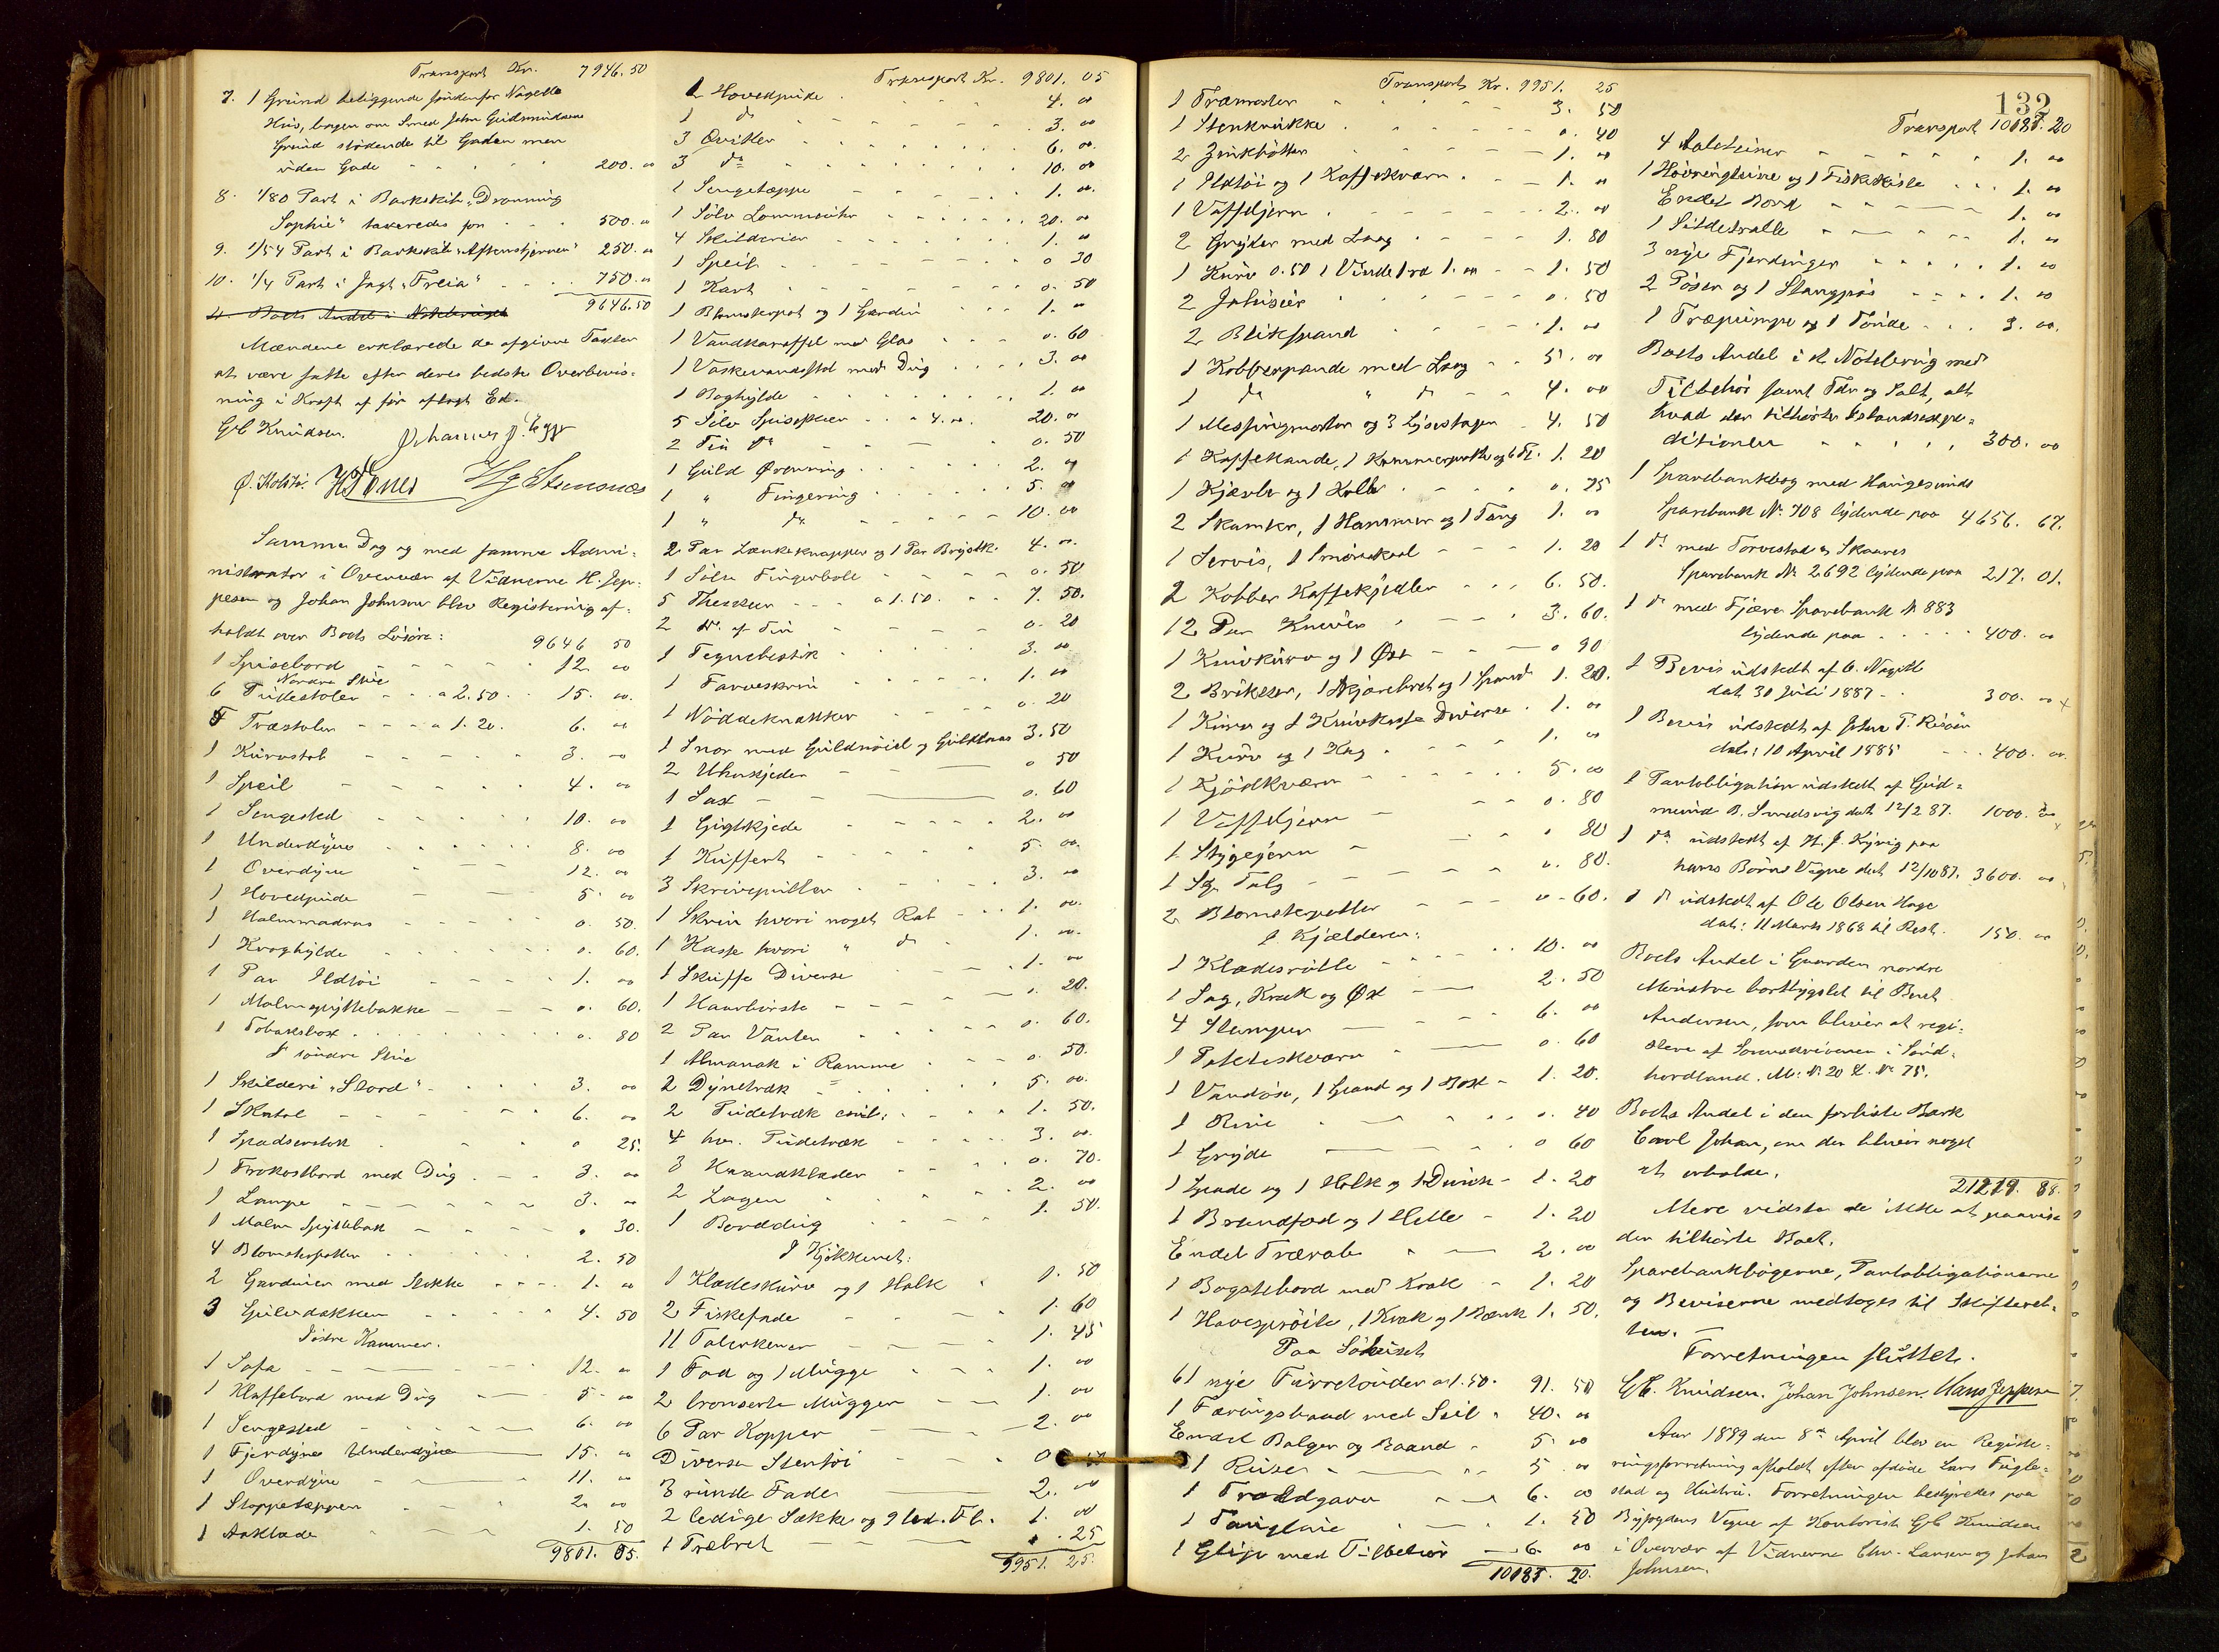 Transport Kr. 7946.50
7. 1 Grund beliggende søndenfor Nagells
Hus, bagen om Smed John Gudmundsens
Grund stødende til Gaden men
uden Gade 200. 00
8. 1/80 Part i Barkskib "Dronning
Sophie" taxeredes for 500. 00
9. 1/54 Part i Barkskib "Aftenstjernen" 250. 00
10. 1/4 Part i Jagt "Freia" 750. 00
9646.50
Mændene erklærede de afgivne Taxter
at være satte efter deres bedste Overbevis-
ning i Kraft af før aflagt Ed.
Gb Knudsen. Johannes J. Egge
Samme Dag og med samme Admi-
nistrator i Overvær af Vidnerne H. Jep-
pesen og Johan Johnsen blev Registrering af-
holdt over Boets Løsøre:
9646 50
1 Spisebord 12. 00
Nordre Stue
6 Pudestoler a 2.50. 15. 00.
5 Træstoler a 1.20. 6. 00
1 Kurvstol 3. 00
1 Speil 4. 00
1 Sengested 10. 00
1 Underdyne 8. 00
1 Overdyne 12. 00
1 Hovedpude 5. 00
1 Halmmadras 0. 50.
1 Kroghylde 0. 60.
1 Par Ildtøi 1. 00
1 Malmspyttebakke 0. 60.
1 Tobaksbox 0. 80
I søndre Stue
1 Skilderi "Stord" 3. 00
1 Skatol 6. 00
1 Spadserstok 0 25.
1 Frokostbord med Dug 3. 00
1 Lampe 3. 00
1 Malm Spyttebak 0 30.
4 Blomsterpotter 2. 50
2 Gardiner med Stokke 1. 00
3 Gulvdækken 4. 50
Søstre Kammer.
1 Sofa 12. 00
1 Klaffebord med Dug 5. 00
1 Sengested 6. 00
1 Fjerdyne Underdyne 15. 00
1 Overdyne 11. 00
1 Stoppetæppen 2. 00
1 Aaklæde 1. 50
9801. 05.
Transport Kr. 9801. 05
2 Hovedpuder 4. 00
1 do 3. 00
3 Qvitler 6. 00.
3 do 10. 00
1 Sengetæppe 1. 00.
1 Sølv Lommeuhr 20. 00
4 Skilderier 1. 00
1 Speil 0 30
1 Kart 0. 50
1 Blomsterpot og 1 Gardin 1. 00
1 Vandkaraffel med Glas 0. 60
1 Vaskevandsstol med Dug 3. 00
1 Boghylde 1. 00
5 Sølv Spiseskeer a 4. 00. 20. 00
2 Tin do 0. 50
1 Guld Ørenring 2. 00
1 " Fingerring 5. 00
1 " do 10. 00
2 Par Lænkeknapper og 1 Par Brystk. 4. 00.
1 Sølv Fingerbøl 0. 50
5 Theskeer a 1.50. 7. 50.
2 do af Tin 0. 20
1 Tegnebestik 3. 00
1 Farveskrin 1. 00
1 Nøddeknækker 0. 20
1 Snor med Guldnøiel og Guldlaas 3. 50
2 Uhrkjeder 0 50
1 Sax 0. 60
1 Gigtkjede 2. 00
1 Kuffert 5. 00.
3 Skrivepulter 3. 00
1 Skrin hvori noget Rat 1. 00.
1 Kasse hvori " do 1. 00.
1 Skuffe Diverse 1. 00
1 Haarbørste 0. 20.
2 Par Vanter 0. 60.
1 Almanak i Ramme 0. 50.
2 Dynetræk 5. 00.
2 Pudetræk coul: 1. 50.
4 hv. Pudetræk 3. 00.
3 Haandklæder 0. 70.
2 Lagen 2. 00
1 Borddug 1. 50.
I Kjøkkenet:
1 Klædeskurv og 1 Holk 1. 50
2 Fiskefade 1. 60
11 Talerkener 1. 45
1 Fad og 1 Mugge 1. 00
2 bronserte Mugger 1. 00
6 Par Kopper 2. 00
Diverse Stentøi 0
3 runde Fade 2. 00
2 ledige Sække og 9 led. Fl. 1. 00
1 Træbret 25
9951. 25.
Transport Kr. 9951. 25
1 Træmorter 3. 50
1 Stenkrukke 0. 40
2 Zinkbøtter 1. 00
1 Ildtøi og 1 Kaffekværn 1. 00
1 Vaffeljern 2. 00
2 Gryder med Laag 1. 80
1 Kurv 0.50 1 1. 00 1. 50
2 Jalusier 0. 50
2 Blikspand 1. 00
1 Kobberpande med Laag 5. 00
1 do " do 4. 00
1 Messingmorter og 3 Lysestager 4. 50
1 Kaffekande, 1 Kammerpotte og 6 Fl. 1. 20
1 Kjævle og 1 Kolle 0. 75
2 Skamler, 1 Hammer og 1 Tang 1. 00
1 Servis, 1 Smørskaal 1. 20
2 Kobber Kaffekjedler 6. 50.
12 Par Kniver 3. 60.
1 Knivkurv og 1 Øse 0 90
2 Brikker, 1 Skjærebret og 1 Spand 1. 20.
1 Kurv og 1 Knivkasse Diverse 1. 00
1 Kurv og 1 Kag 1. 00
1 Kjødkværn 5. 00
1 Vaffeljern 0. 80
1 Strygejern 0 80
1 Talg 0. 80.
2 Blomsterpotter 0 60.
I Kjælderen:
1 Klædesrulle 10. 00
1 Sag, Krak og Øx 2. 50
4 Stamper 6. 00
1 Poteteskværn 0. 60
1 Vandøse, 1 Spand og 1 Box 1. 20.
1 Rive 0. 40
1 Gryde 0 60
1 Spade og 1 Holk og 1 Dunk 1. 20
1 Brændfad og 1 Helle 1. 20
Endel Trærab 2. 00
1 Bagstebord med Krak 1. 20
1 Havesprøite, 1 Krak og 1 Bænk 1. 50.
Paa Søhuset
61 nye Furretønder a 1.50. 91. 50
1 Færingsbaad med Seil 40. 00
Endel Balger og Baand 5 00
1 Ruse 5. 00
1 Troldgarn 6. 00
1 Tougline 1. 50
1 Glip med Tilbehør 6. 00
20.
132
Transport 20
4 Aaleteiner 1. 00
1 Hövringteine og 1 Fiskekiste 1. 00
Endel Bord 1. 00
1 Sildetralle 1. 00
3 nye Fjerdinger 1. 00
2 Pøser og 1 Stangpøs 1. 00
1 Træpumpe og 1 Tønde 3. 00.
Boets Andel i et Notebrug med
Tilbehør samt Tdr og Salt, alt
hvad der tilhører Islandsexpe-
ditionen 300. 00
1 Sparebankbog med Haugesunds
Sparebank No. 708 lydende paa 4656. 67.
1 do med Torvestad og Skaares
Sparebank No 2692 lydende paa 217. 01.
1 do med Fjære Sparebank N 883
lydende paa 400. 00
1 Bevis udstedt af C. Nagell
dat 30 Juli 1887 300. 00
1 Bevis udstedt af John T. Risøen
dat: 10 April 1885 400. 00.
1 Pantobligation udstedt af Gud-
mund B. Smedsvig dat 12/2 87. 1000. 00
1 do udstedt af H. J. Kyvig paa
hans Børns Vegne dat 12/10 87. 3600. 00
1 do udstedt af Ole Olsen Hage
dat: 11 Marts 1868 til Rest. 150. 00
Boets Andel i Gaarden nordre
Mønstre bortbygslet til Beret
Andersen, som bliver at regi-
strere af Sorenskriveren i Sønd-
hordland. M: N: 20 L. No 75.
Boets Andel i den forliste Bark
Carl Johan, om der bliver noget
at erholde.
88.
Mere vidste de ikke at paavise
der tilhørte Boet.
Sparebankbøgerne, Pantobligationerne
og Beviserne medtoges til Skifteret-
ten.
Forretningen sluttet.
Gb. Knudsen. Johan Johnsen. Hans Jeppesen
Aar 1889 den 8de April blev en Registe-
ringsforretning afholdt efter afdøde Lars Fugle-
stad og Hustru. Forretningen bestyredes paa
Byfogdens Vegne af Kontorist Gb Knudsen
i Overvær af Vidnerne Chr. Larsen og Johan
Johnsen.